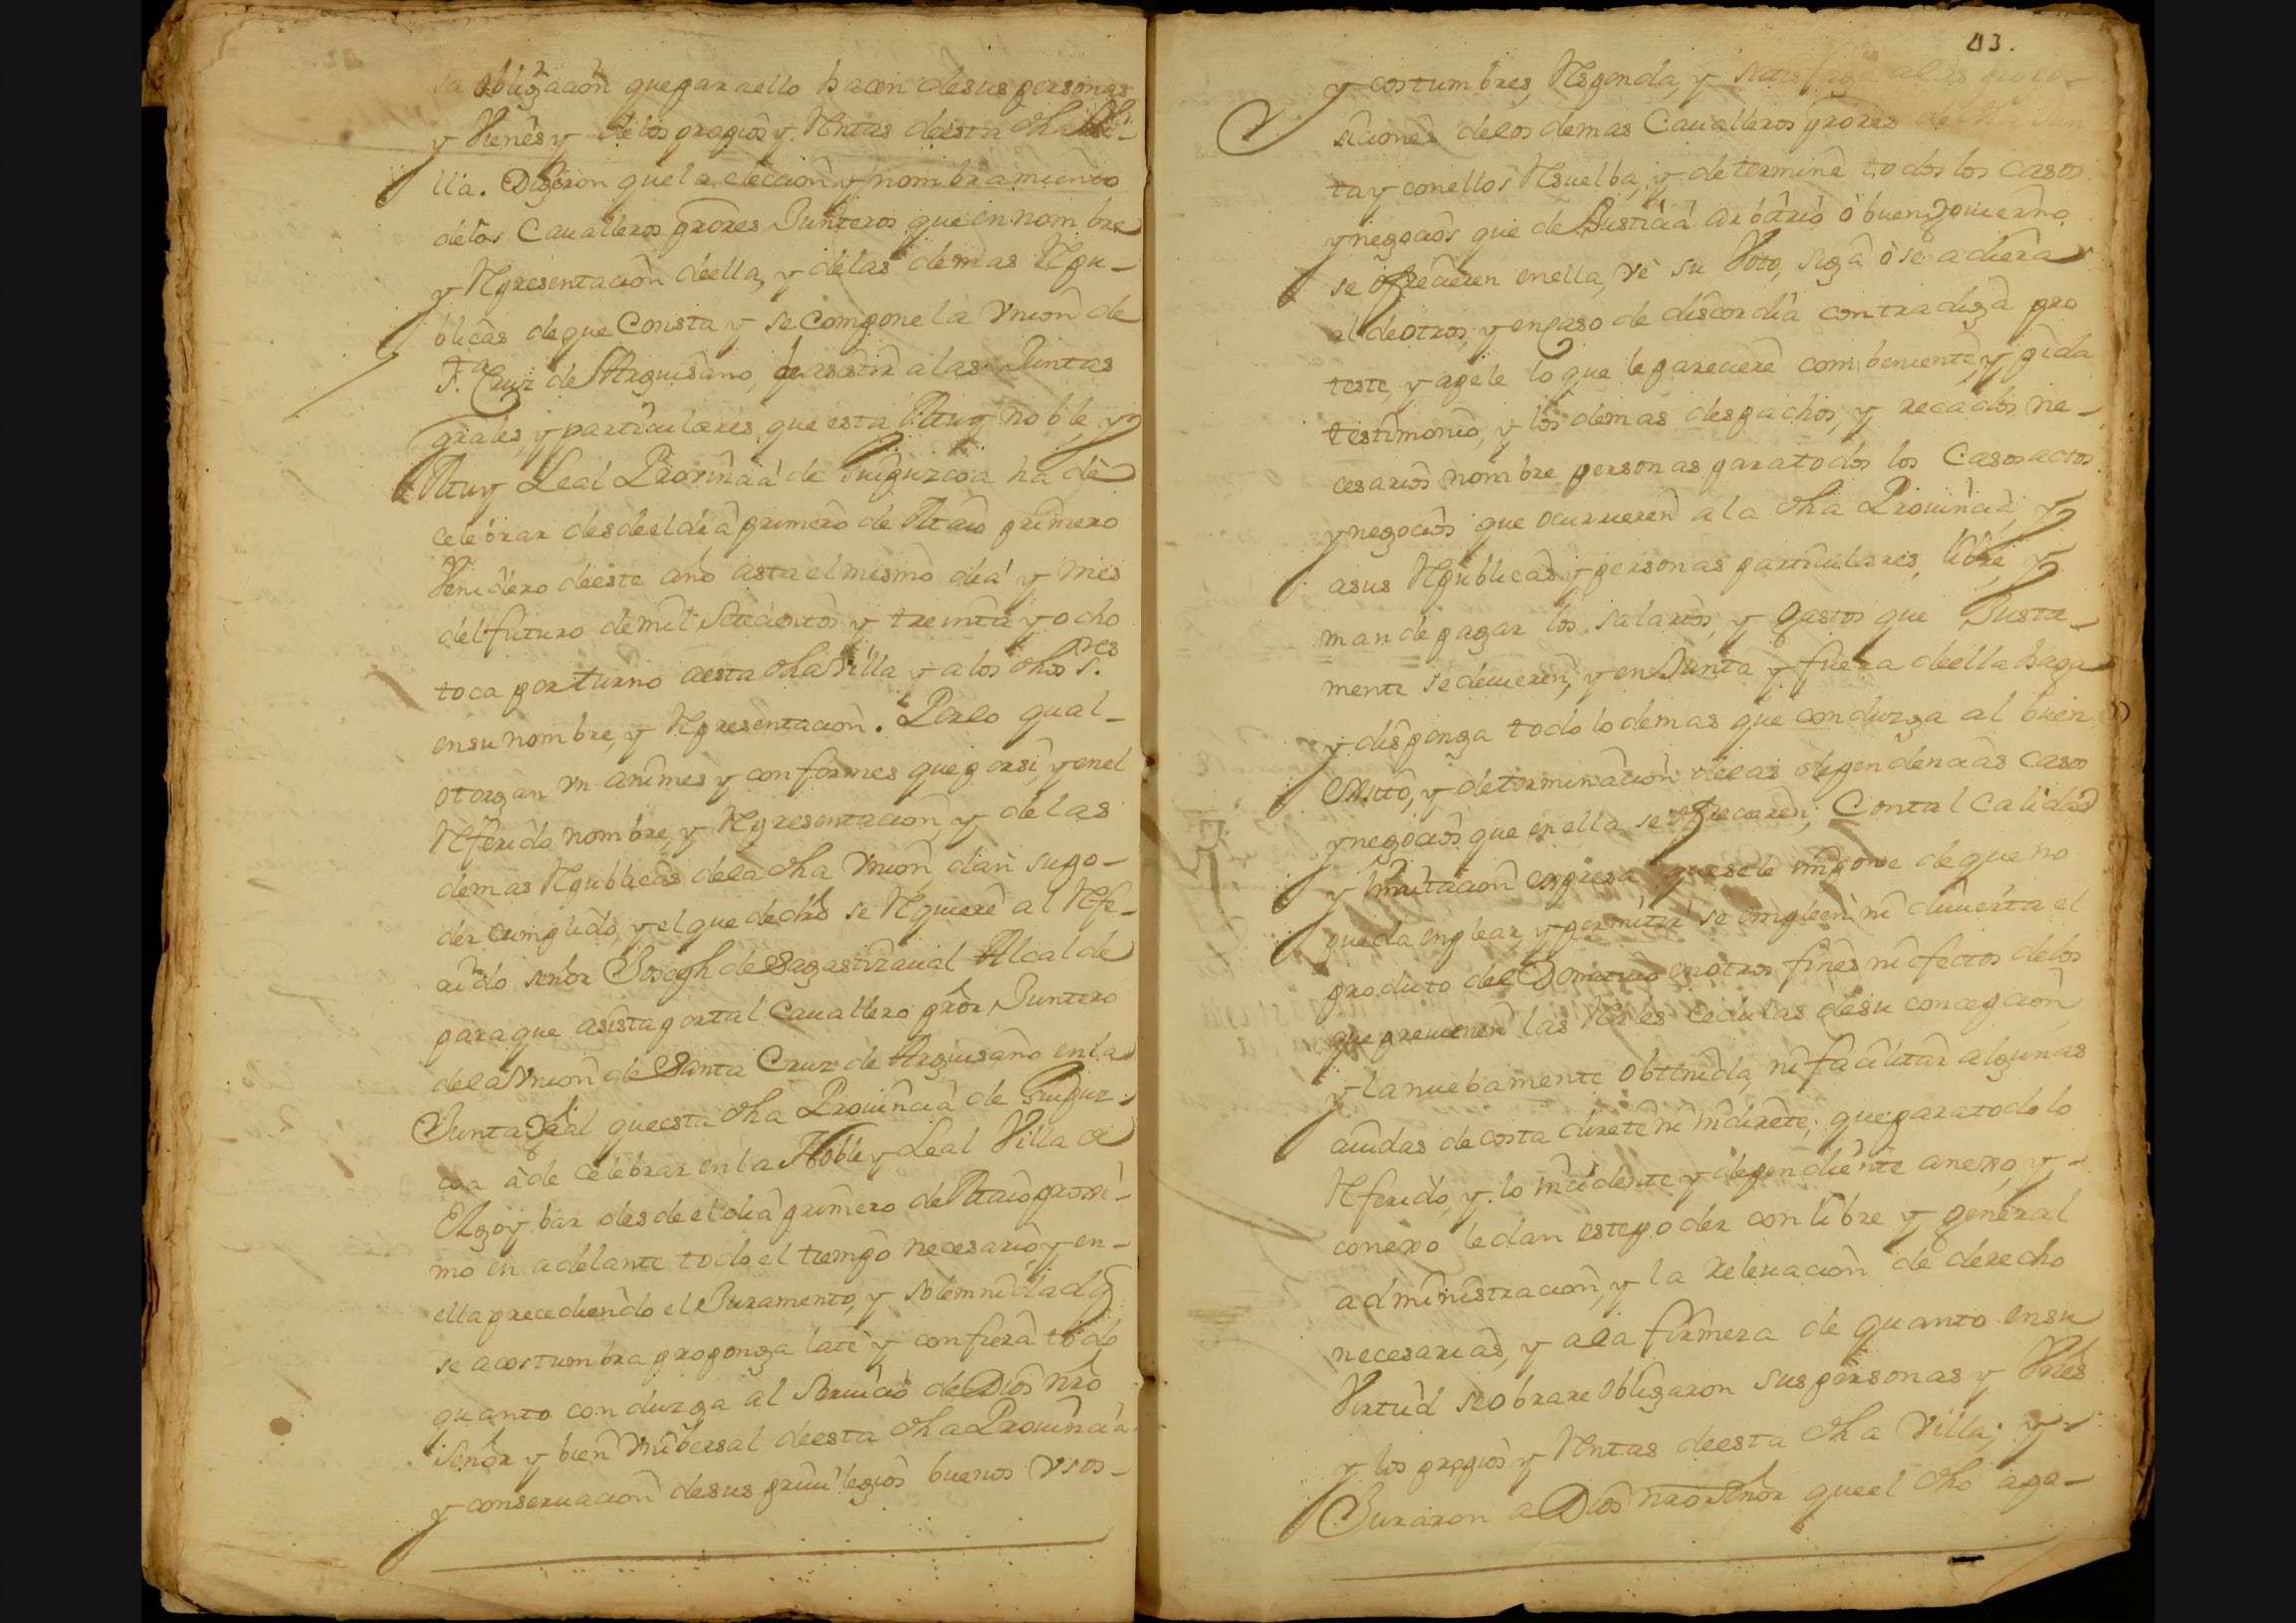 sa obligacion que para ello hacen de sus personas
y Vienes y de los propios y Rentas de esta dha Vi-
lla. Digeron que la eleccion y nombramiento
de los Caualleros prores Junteros que en nombre
y Representacion de ella, y de las demas Repu-
blicas de que Consta y se compone la Vnion de
S.ta Cruz de Arguisano, para asistir a las Juntas
grales, y particulares que esta Muy noble, y
Muy Leal Prouincia de Guipuzcoa ha de
celebrar desde el dia primero de Maio primero
Venidero de este año asta el mismo dia y mes
del futuro de mil Setecientos y treinta y ocho
toca por turno a esta dha Villa y a los dhos S.res
en su nombre, y Representacion. Por lo qual-
otorgan vn animes y conformes que por si, y en el
Referido nombre, y Representacion, y de las
demas Republicas de la dha Vnion, dan su po-
der cumplido, y el que de dro se Requiere al Refe-
rido señor Joseph de Sagastizaual Alcalde
para que asista por tal Cauallero pror Juntero
de la Vnion de Santa Cruz de Arguisano en la
Junta Gral que esta dha Prouincia de Guipuz-
coa à de celebrar en la Noble y Leal Villa de
Elgoybar desde el dia primero de Maio proxi-
mo en adelante todo el tiempo necesario, y en-
ella precediendo el Juramento, y solemnidad q
se acostumbra proponga late y confiera todo
quanto conduzga al Seruicio de Dios nro
Señor y bien vnibersal de esta dha Prouincia
y conseruacion de sus priuilegios buenos vsos-
43.
y costumbres, Responda, y satisfaga a las propo-
siciones de los demas Caualleros prores de dha Jun
ta y con ellos Resuelba, y determine todos los casos
y negocios que de Justicia arbitrio ò buen gouierno
se ofrecieren en ella, dè su Voto, siga ò se adiera
al de otros, y en caso de discordia contradiga pro
teste, y apele lo que le pareciere combeniente, y pida
testimonio, y los demas despachos, y recados ne-
cesarios nombre personas para todos los Casos actos
y negocios que ocurrieren a la dha Prouincia, y
a sus Republicas y personas particulares, libre, y
mande pagar los salarios, y gastos que Justa-
mente se deuieren, y en Junta y fuera de ella haga
y disponga todo lo demas que conduzga al buen
exito, y determinacion de las dependencias casos
y negocios que en ella se ofrecieren; Con tal Calidad
y limitacion expresa que se le impone de que no
pueda emplear, y permitir se empleen ni diuierta el
produto del Donatiuo en otros fines ni efectos de los
que preuienen las Rles cedulas de su concepcion
y la nuebamente obtenida, ni facilitar algunas
aiudas de costa direte ni indirete; que para todo lo
Referido, y lo incidente y dependiente anexo, y-
conexo le dan este poder con libre y general
administracion, y la Releuacion de derecho
necesarias, y a la firmeza de quanto en su
Virtud se obrare obligaron sus personas y Vies
y los propios y Rentas de esta dha Villa; y-
Juraron a Dios nro Señor que el dho apo-